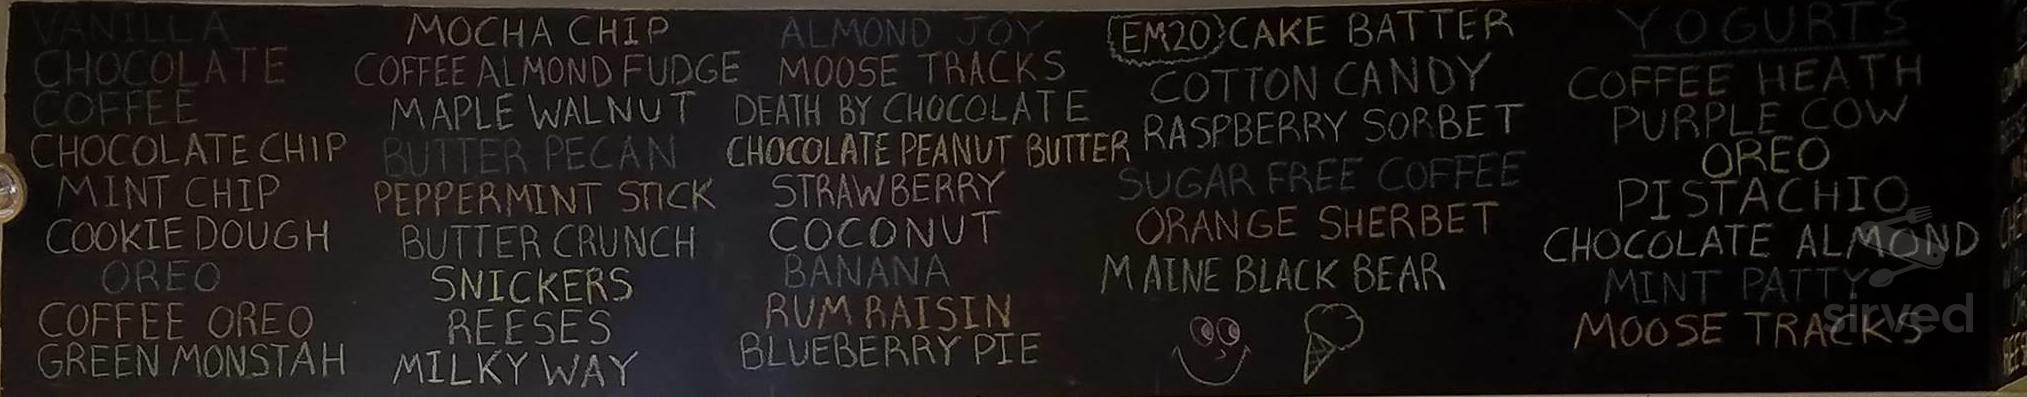 VANILLA
CHOCOLATE
COFFEE
CHOCOLATE CHIP
MINT CHIP
COOKIE DOUGH
OREO
COFFEE OREO
GREEN MONSTAH
MOCHA CHIP
COFFEE ALMOND FUDGE
MAPLE WALNUT
BUTTER PECAN
PEPPERMINT STICK
BUTTER CRUNCH
SNICKERS
REESES
MILKY WAY
ALMOND JOY
MOOSE TRACKS
DEATH BY CHOCOLATE
CHOCOLATE PEANUT BUTTER
STRAWBERRY
COCONUT
BANANA
RUM RAISIN
BLUEBERRY PIE
EM20 CAKE BATTER
COTTON CANDY
RASPBERRY SORBET
SUGAR FREE COFFEE
ORANGE SHERBET
MAINE BLACK BEAR
YOGURTS
COFFEE HEATH
PURPLE COW
OREO
PISTACHIO
CHOCOLATE ALMOND
MINT PATTY
MOOSE TRACKS
sirved